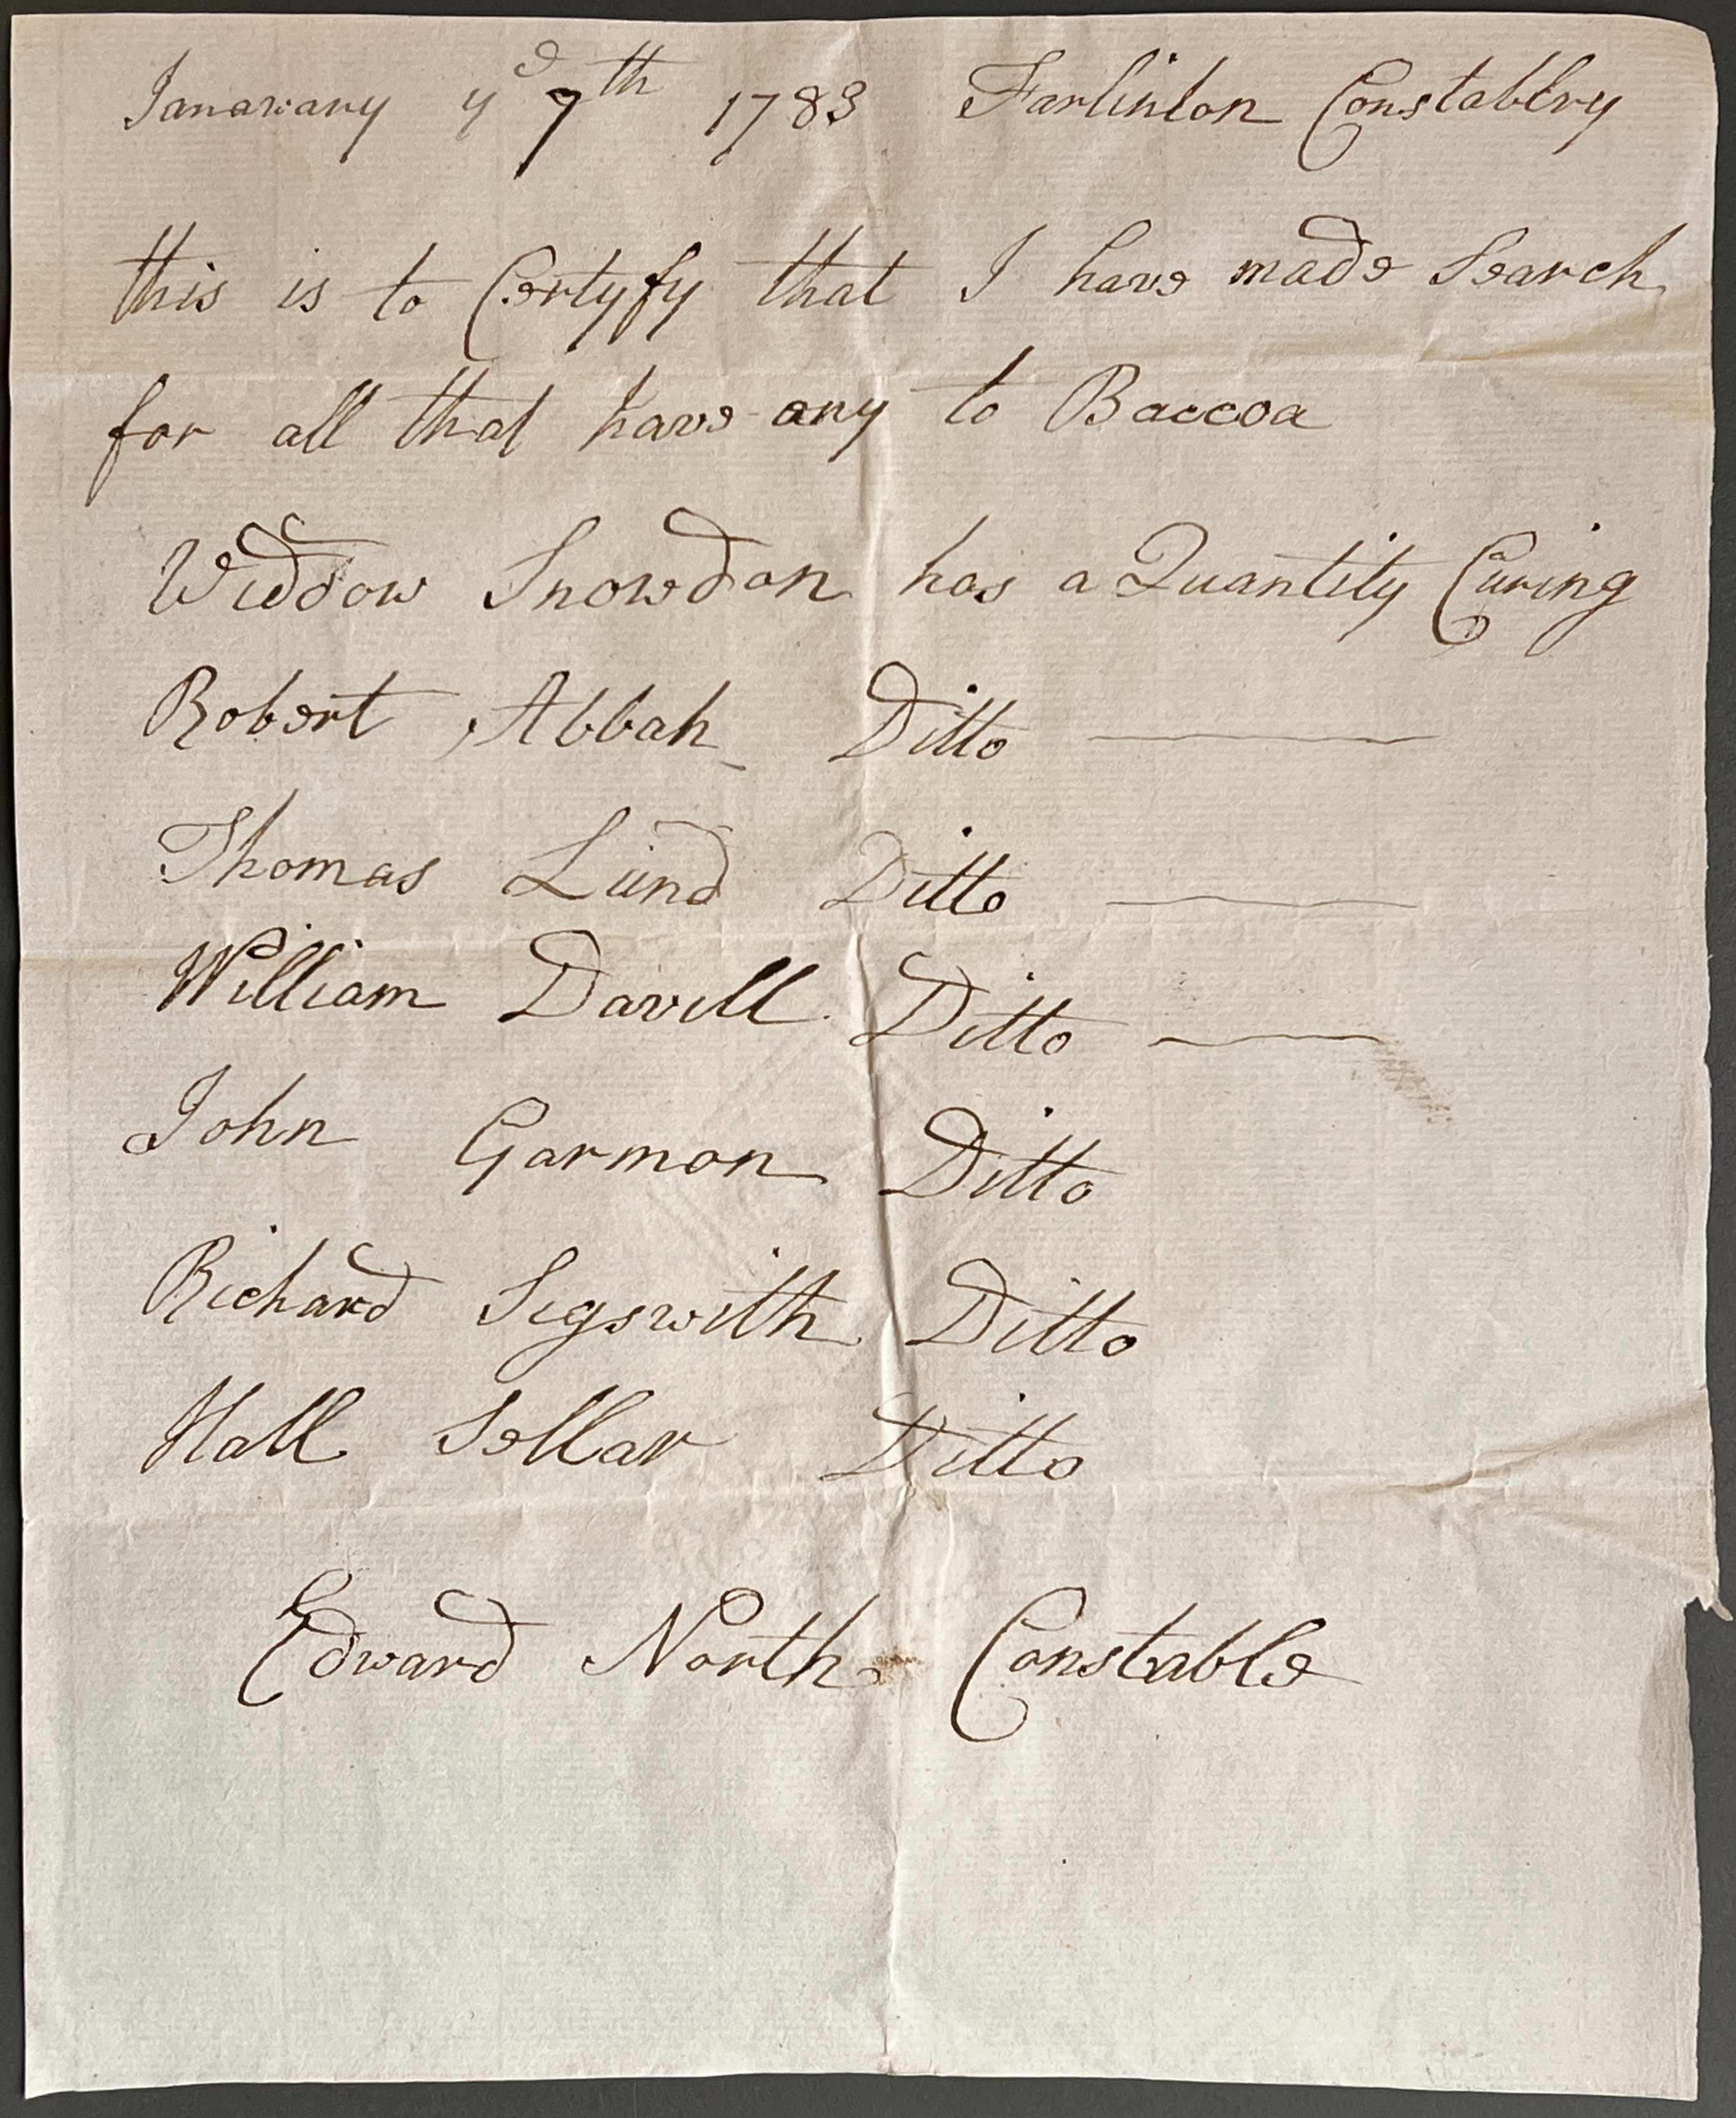 Janawary ye 7th 1783 Farlinton Constablry
this is to Certyfy that I have made Search
for all that have any to Baccoa
Widdow Snowdon has a Quantity Curing
Robert Abbah Ditto
Thomas Lund Ditto
William Davill Ditto
John Garmon Ditto
Richard Sigswith Ditto
Hall Sellar Ditto
Edward North Constable